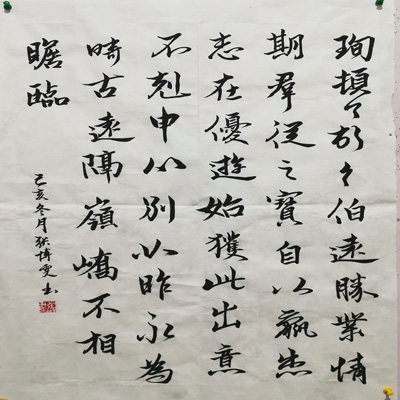 珣頓々首々伯遠勝業情
期羣從之寶自以羸患
志在優遊始獲此出意
不剋申分別如昨永為
疇古遠隔嶺嶠不相
瞻臨
己亥冬月张博雯书